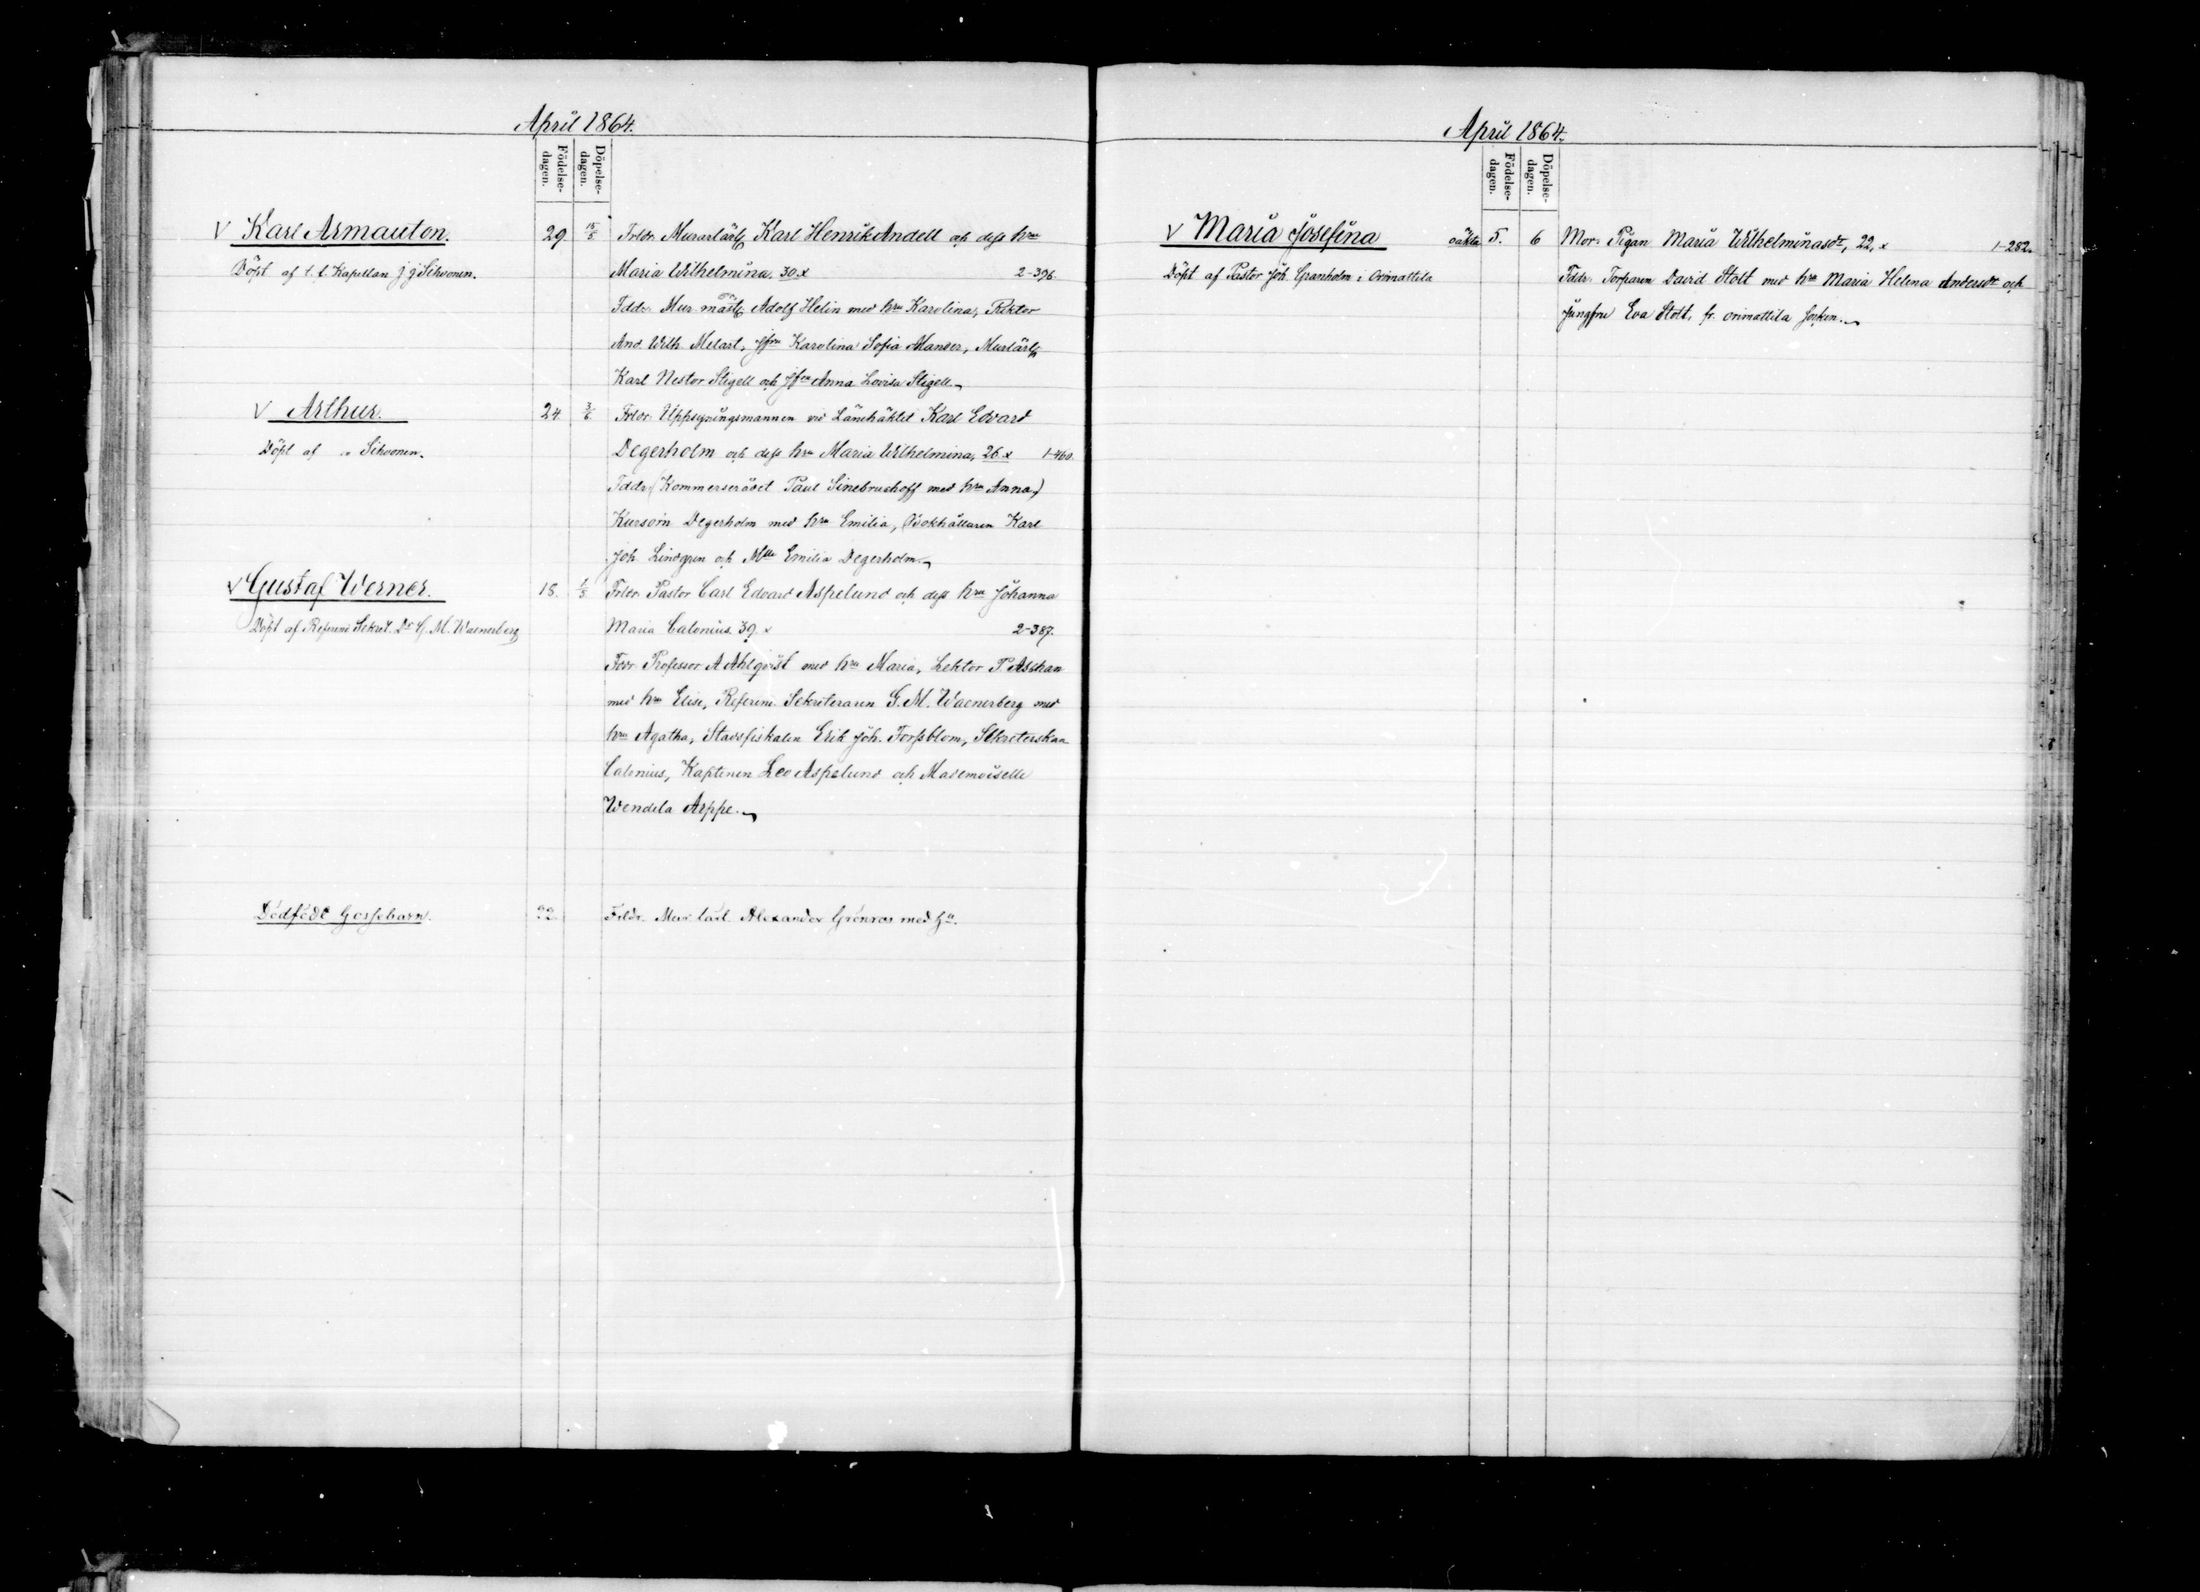 April 1864.
Födelse-dagen.
Döpelse-dagen.
V Karl Armauton. 29. 15/5 Frldr. Murarlärl. Karl Henrik Andell och dess hru
Döpt af t. f. Kapellan J. J. Sihvonen. Maria Wilhelmina, 30. x 2-396.
Fddr. Mur.mäst. Adolf Helin med hru Karolina, Rektor
And. Wilh. Melart, jfru Karolina Sofia Mander, Murlärl.
Karl Nestor Stigell och jfru Anna Lovisa Stigell.
V Arthur. 24 3/6 Frldr. Uppsyningsmannen vid Länehäktet Karl Edvard
Döpt af " Sihvonen. Degerholm och dess hru Maria Wilhelmina, 26. x 1-460.
Fddr. (Kommerserådet Paul Sinebruchoff med hru Anna,)
Kursorn Degerholm med hru Emilia, Bokhållaren Karl
Joh. Lindgren och Mlle Emilia Degerholm.
V Gustaf Werner. 18. 1/5 Frldr. Pastor Carl Edvard Aspelund och dess hru Johanna
Döpt af Referend. Sekret. Dr G. M. Waenerberg Maria Calonius. 39. x 2-387.
Fddr. Professor A Ahlqvist med hru Maria, Lektor P Aschan
med hru Elise, Referend. Sekreteraren G. M. Waenerberg med
hru Agatha, Stadsfiskalen Erik Joh. Forssblom, Sekreterskan
Calonius, Kaptenen Leo Aspelund och Mademoiselle
Wendela Arppe.
Dödfödt Gossebarn. 22. Frldr. Mur. lärl. Alexander Grönroos med hu.
April 1864.
Födelse-dagen.
Döpelse-dagen.
V Maria Josefina oäkta 5. 6 Mor. Pigan Maria Wilhelminasdr, 22, x 1-282.
Döpt af Pastor Joh. Granholm i Orimattila Fddr. Torparen David Stolt med hru Maria Helena Andersdr och
jungfru Eva Stolt, fr. Orimattila Socken.